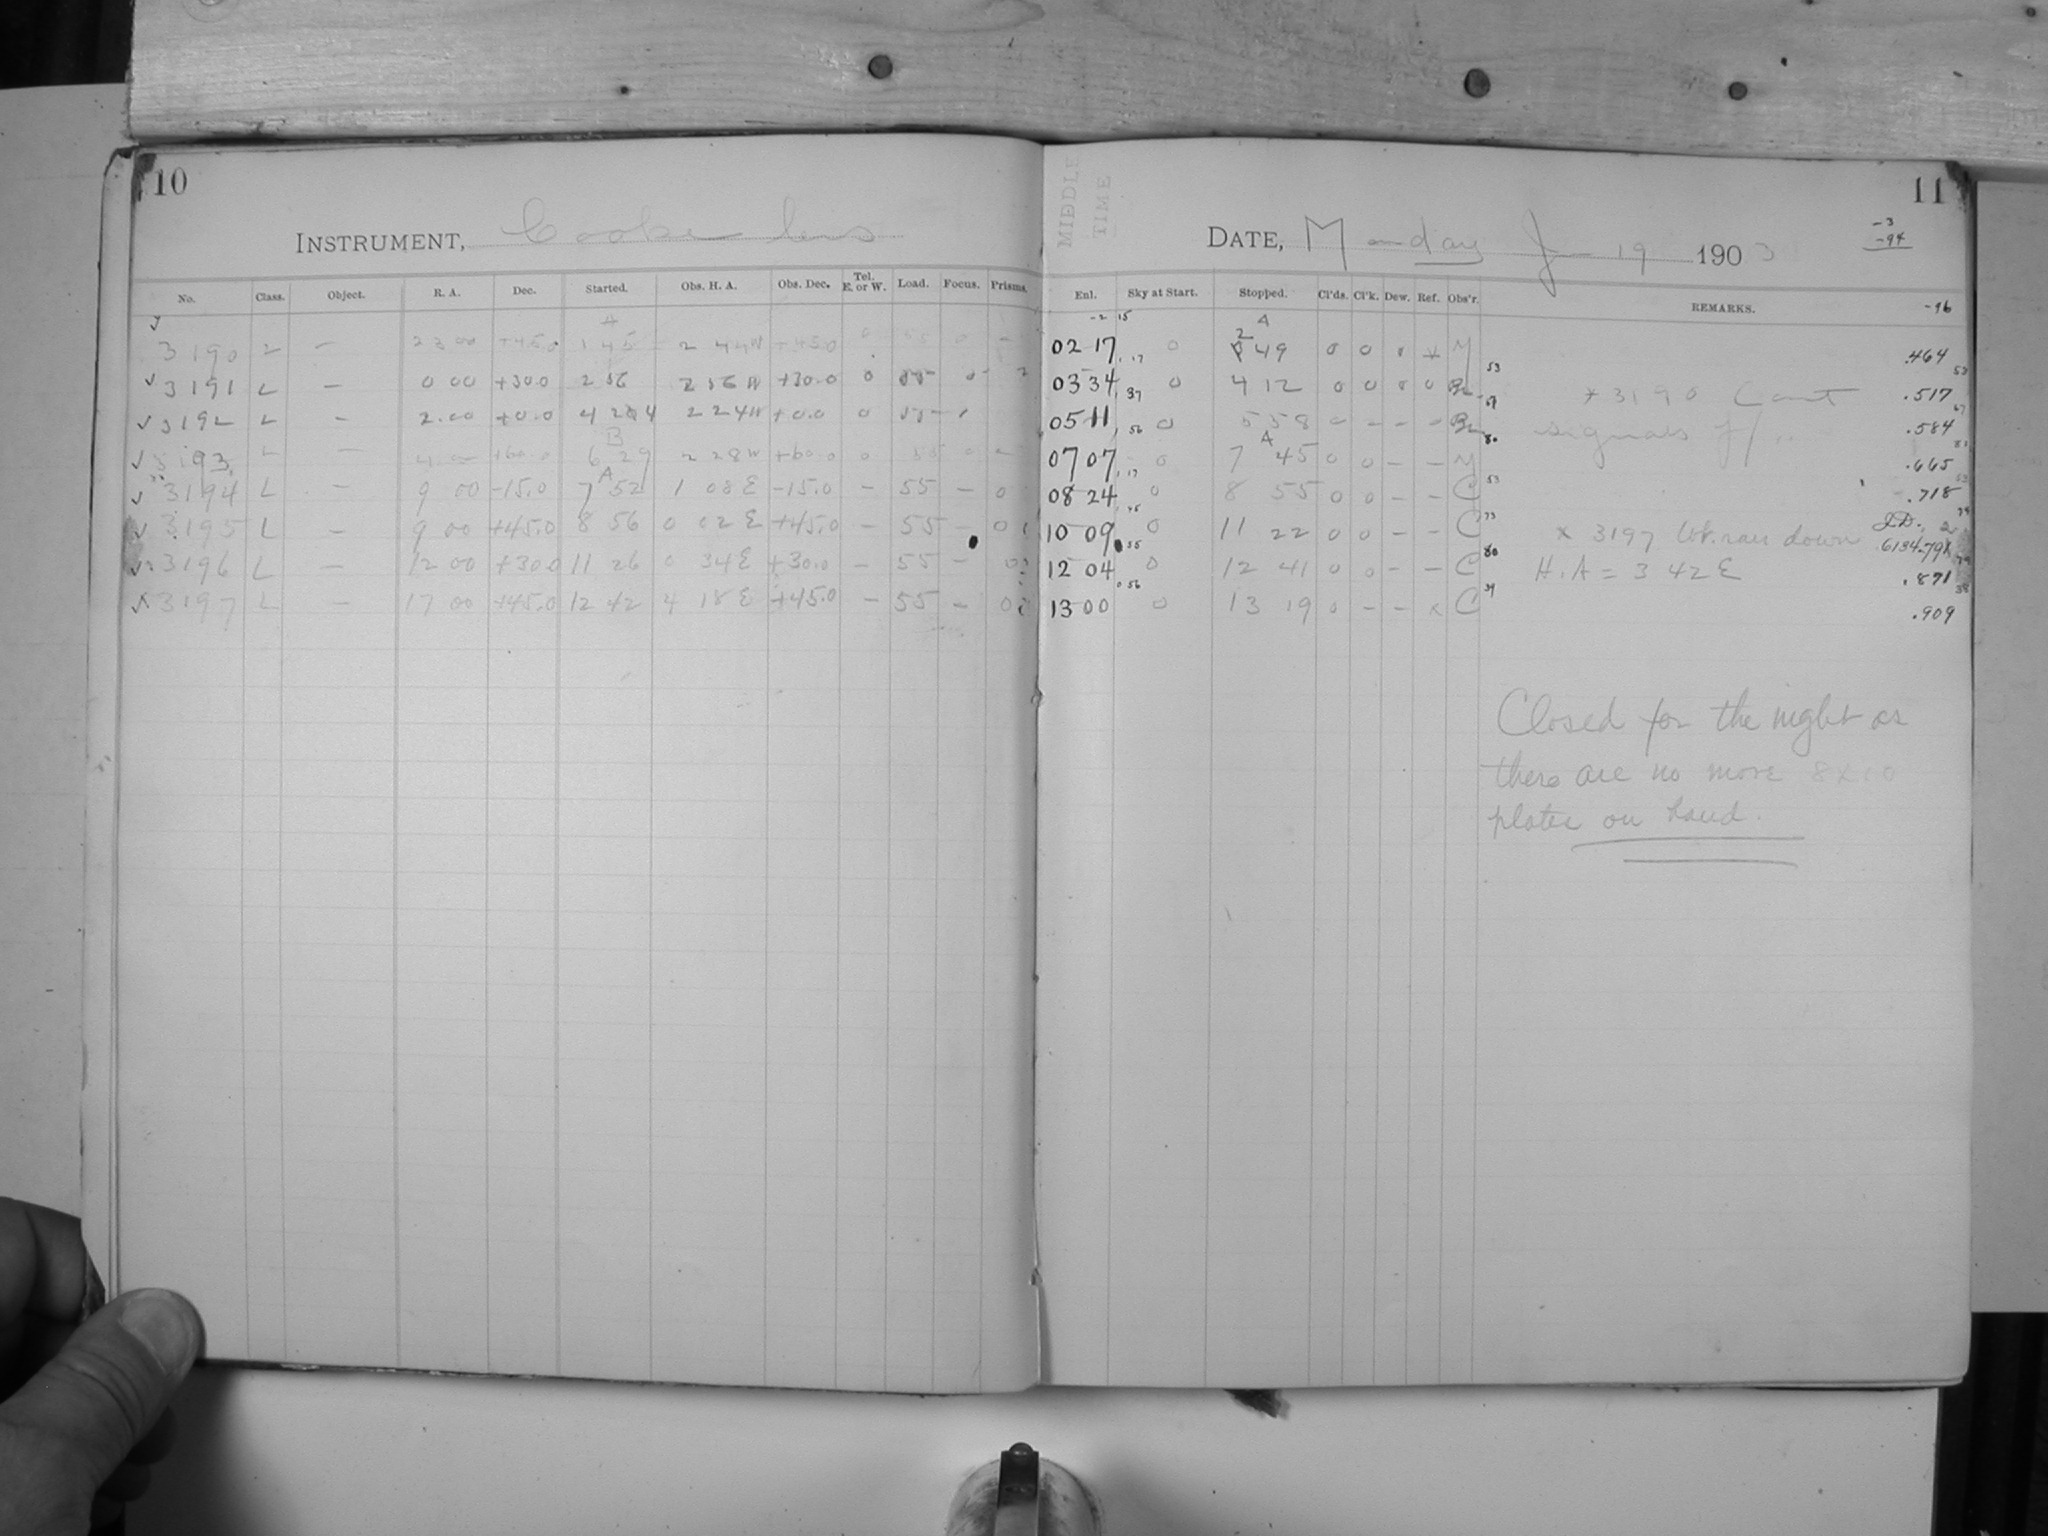 10
INSTRUMENT, Cooke lens
No. Class. Object. R. A. Dec. Started. Obs. H. A. Obs. Dec. Tel. E. or W. Load. Focus. Prisms.
3190 L — 23 00 +45.0 1 45 2 44 W +45.0 0 55 0 —
✓ 3191 L — 0 00 +30.0 2 56 2 56 W +30.0 0 55 0
✓ 3192 L — 2.00 +0.0 4 24 2 24 W +0.0 0 55 -
✓ 3193 L — 4 00 +60.0 6 29 2 28 W +60.0 0 55 0 —
✓ 3194 L — 9 00 -15.0 7 52 1 08 E -15.0 — 55 — 0
✓ 3195 L — 9 00 +45.0 8 56 0 02 E +45.0 — 55 — 0
3196 L — 12 00 +30.0 11 26 0 34 E +30.0 — 55 — 0
x 3197 L — 17 00 +45.0 12 42 4 18 E +45.0 — 55 — 0
MIDDLE
TIME
11
-3
-94
DATE, Monday Jan 19 1903
-96
Enl. Sky at Start. Stopped. Cl'ds. Cl'k. Dew. Ref. Obs'r. REMARKS.
-2 15 A
02 17 0 2 49 0 0 0 x M .464
03 34 0 4 12 0 0 0 0 .517
x 3190 Can't
05 11 0 5 58 0 — — — .584
signals
07 07 0 7 45 0 0 — — M .665
08 24 0 8 55 0 0 — — C .718
10 09 0 11 22 0 0 — — C
x 3197 Wt. ran down
J.D. 2
6134.791
12 04 0 12 41 0 0 — — C H.A = 3 42 E .871
13 00 0 13 19 0 — — x C .909
Closed for the night as
there are no more 8x10
plates on hand.